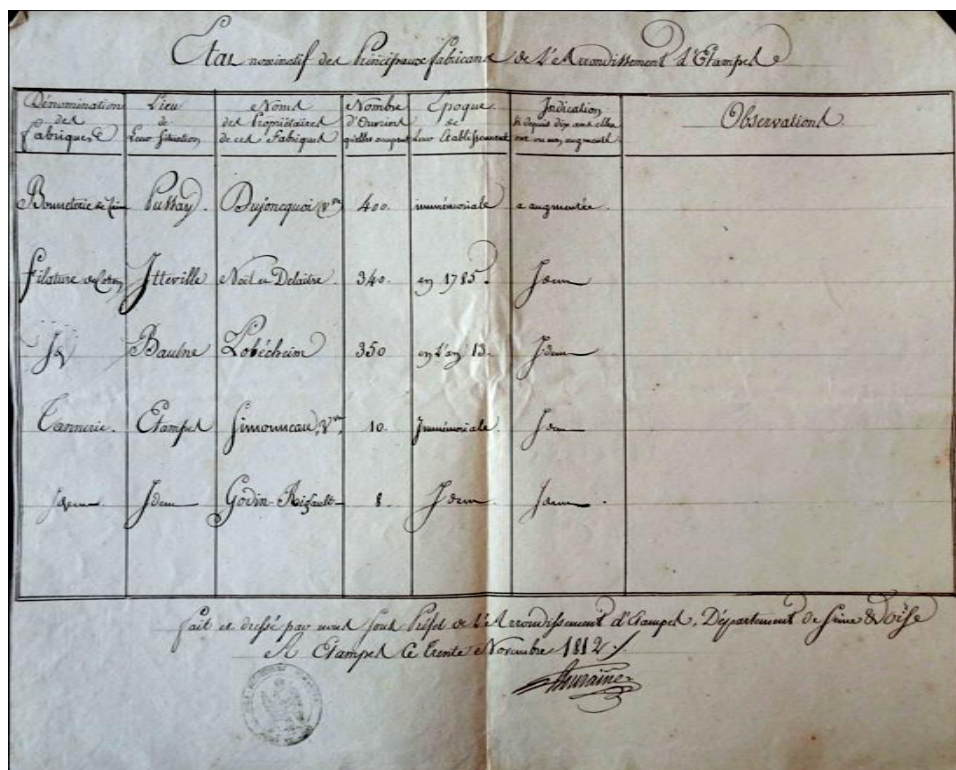 Etat nominatif des Principaux fabricans de L'Arrondissement d'Etampes
Dénomination des fabriques
Lieu de Leur Situation
Noms des Propriétaires de ces Fabriques
Nombre d'Ouvriers qu'elles occupent
Epoque de Leur Etablissement
Indication si depuis dix ans elles ont ou non augmenté
Observations
Bonneterie de Pussay. Dujoncquoi Vve 400. immémoriale a augmentée.
filature de Coton Itteville Noël et Delaitre 340. en 1785. Idem
Id Baulne Lobécheim 350 en L'an 13. Idem
Tannerie. Etampes Simonneau, Vve 10. Immémoriale Idem
Idem Idem Godin-Rigault 8. Idem Idem.
fait et dressé par nous sous Préfet de L'Arrondissement d'Etampes, Département de Seine & Oise
A Etampes Ce trente Novembre 1812